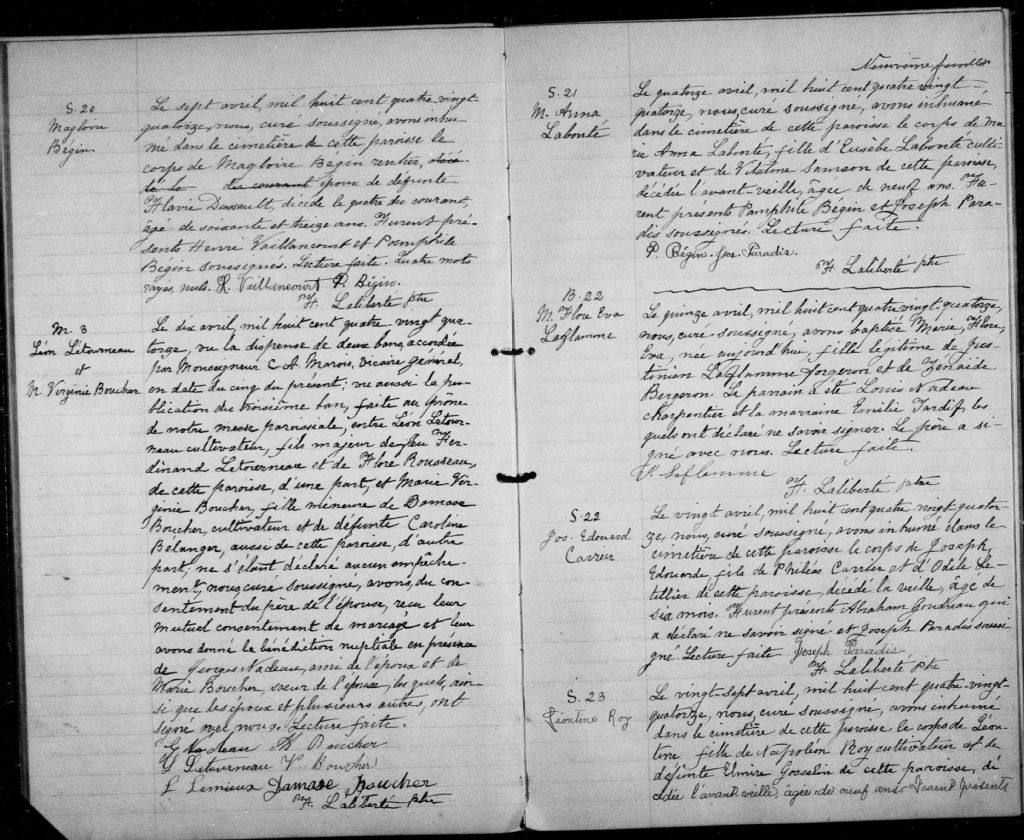 S. 20
Magloire
Bégin
Le sept avril, mil huit cent quatre vingt-
quatorze, nous, curé soussigné, avons inhu-
mé dans le cimetière de cette paroisse le
corps de Magloire Bégin rentier, décé-
dé le dix courant époux de défunte
Flavie Dussault, décédé le quatre du courant,
âgé de soixante et treize ans. Furent pré-
sents Henri Vaillancourt et Pamphile
Bégin soussignés. Lecture faite. Quatre mots
rayés, nuls. H. Vaillancourt P. Bégin.
H. Laliberté ptre
M. 3
Léon Létourneau
et
M. Virginie Boucher
Le dix avril, mil huit cent quatre vingt qua-
torze, vu la dispense de deux bans, accordée
par Monseigneur C. A. Marois, vicaire général,
en date du cinq du présent; vu aussi la pu-
blication du troisième ban, faite au prône
de notre messe paroissiale, entre Léon Létour-
neau cultivateur, fils majeur de feu Fer-
dinand Letourneau et de Flore Rousseau,
de cette paroisse, d'une part, et Marie Vir-
ginie Boucher, fille mineure de Damase
Boucher, cultivateur et de défunte Caroline
Bélanger, aussi de cette paroisse, d'autre
part; ne s'étant déclaré aucun empêche-
ment, nous, curé soussigné, avons, du con-
sentement du père de l'épouse, reçu leur
mutuel consentement de mariage et leur
avons donné la bénédiction nuptiale en présence
de Georges Nadeau, ami de l'époux et de
Marie Boucher, soeur de l'épouse, lesquels, ain-
si que les époux et plusieurs autres, ont
signé avec nous. Lecture faite.
G Nadeau M. Boucher
L Letourneau V. Boucher
L Lemieux Damase Boucher
H. Laliberté ptre
Neuvième feuillet
S. 21
M. Anna
Labonté
Le quatorze avril, mil huit cent quatre vingt-
quatorze, nous, curé soussigné, avons inhumé
dans le cimetière de cette paroisse le corps de Ma
rie Anna Labonté, fille d'Eusèbe Labonté culti-
vateur et de Vitaline Samson de cette paroisse,
décédée l'avant-veille, âgée de neuf ans. Fu-
rent présents Pamphile Bégin et Joseph Para-
dis soussignés. Lecture faite.
P. Bégin. Jos. Paradis.
H. Laliberté ptre
B. 22
M. Flore Eva
Laflamme
Le quinze avril, mil huit cent quatre vingt-quatorze,
nous, curé soussigné, avons baptisé Marie, Flore,
Eva, née aujourd'hui, fille légitime de Jus-
tinien Laflamme forgeron et de Zénaïde
Bergeron. Le parrain a été Louis Nadeau
charpentier et la marraine Emilie Tardif, les
quels ont déclaré ne savoir signer. Le père a si-
gné avec nous. Lecture faite.
Laflamme
H. Laliberté ptre
S. 22
Jos. Edouard
Carrier
Le vingt avril, mil huit cent quatre vingt-quator-
ze, nous, curé soussigné, avons inhumé dans le
cimetière de cette paroisse le corps de Joseph,
Edouard, fils de Philéas Carrier et d'Odèle Le-
tellier de cette paroisse, décédé la veille, âgé de
six mois. Furent présents Abraham Goudreau qui
a déclaré ne savoir signé et Joseph Paradis soussi-
gné. Lecture faite. Joseph Paradis
H. Laliberté ptre
S. 23
Léontine Roy
Le vingt-sept avril, mil huit cent quatre-vingt-
quatorze, nous, curé soussigné, avons inhumé
dans le cimetière de cette paroisse le corps de Léon-
tine fille de Napoléon Roy cultivateur et de
défunte Elmire Gosselin de cette paroisse, dé
cédée l'avant veille, âgée de neuf ans. Furent présents